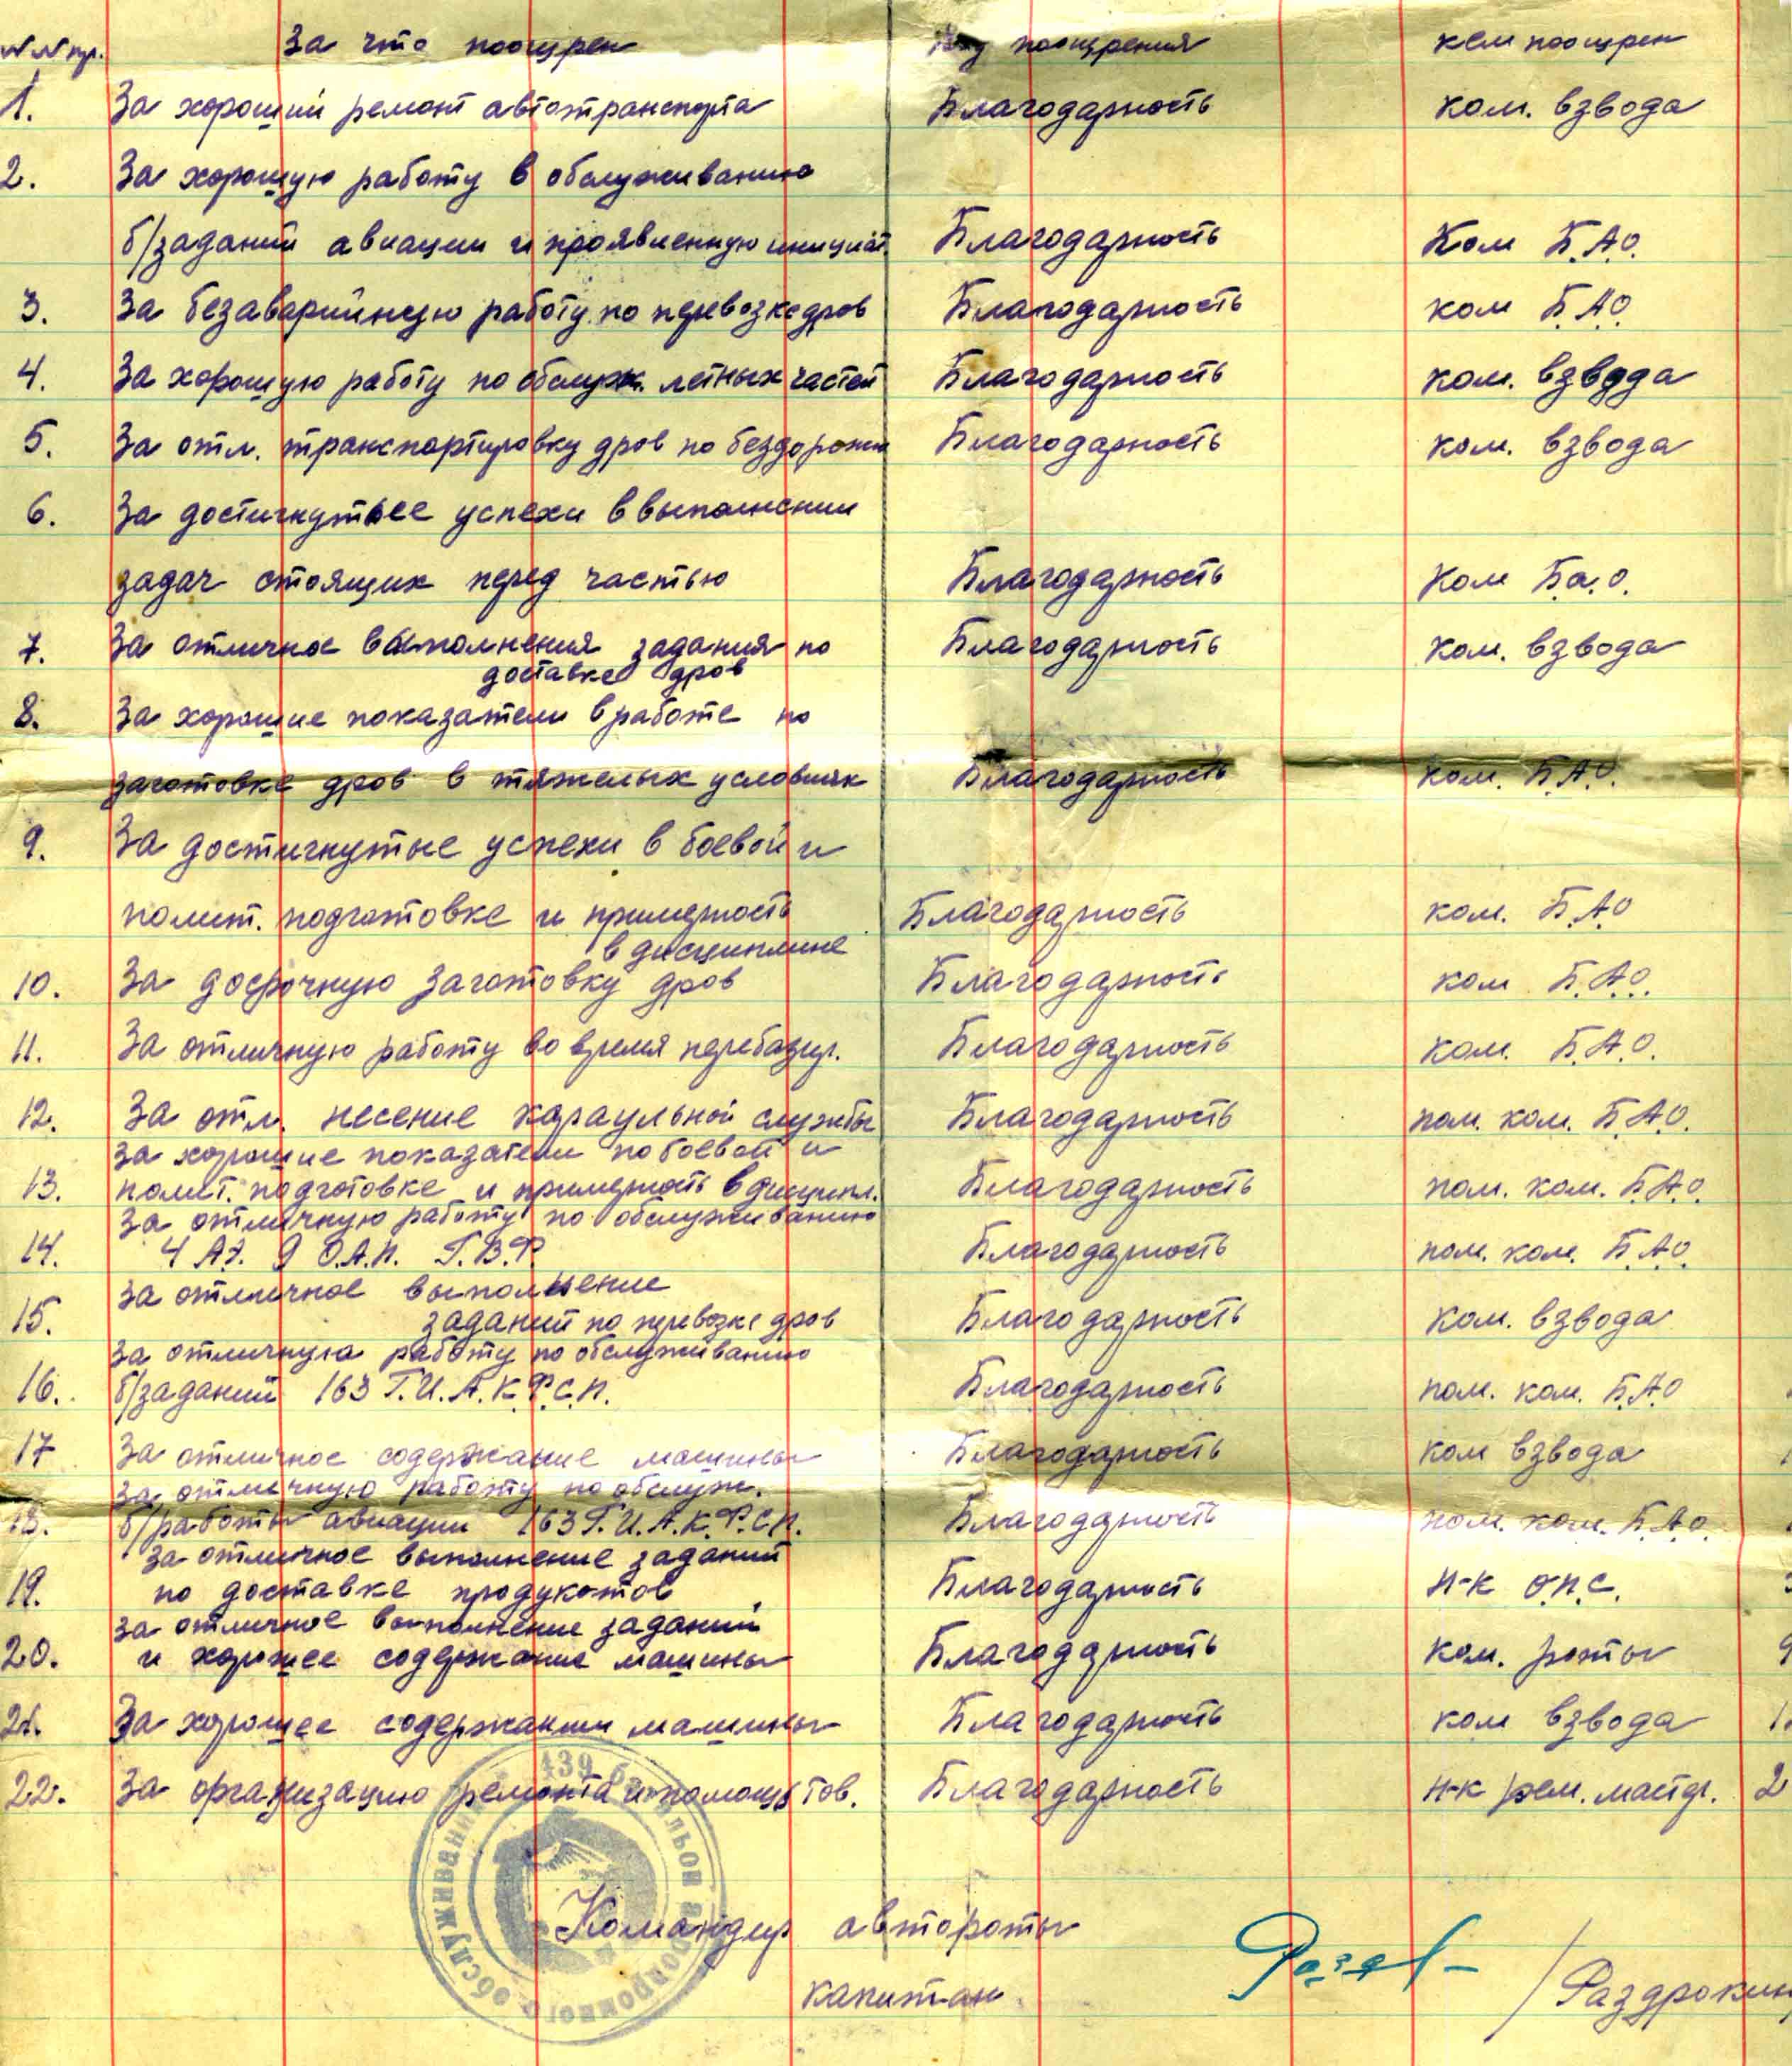 №№ пр. За что поощрен Вид поощрения кем поощрен
1. За хороший ремонт автотранспорта Благодарность ком. взвода
2. За хорошую работу в обслуживанию
б/заданий авиации и проявленную инициат. Благодарность Ком Б.А.О.
3. За безаварийную работу по перевозке дров Благодарность ком Б.А.О.
4. За хорошую работу по обслуж. летных частей Благодарность ком. взвода
5. За отл. транспортировку дров по бездорожью Благодарность ком. взвода
6. За достигнутые успехи в выполнении
задач стоящих перед частью Благодарность Ком Б.а.о.
7. За отличное выполнения задания по Благодарность ком. взвода
доставке дров
8. За хорошие показатели в работе по
заготовке дров в тяжелых условиях Благодарность ком. Б.А.О.
9. За достигнутые успехи в боевой и
полит. подготовке и примерность Благодарность ком. Б.А.О
в дисциплине
10. За досрочную заготовку дров Благодарность ком Б.А.О.
11. За отличную работу во время перебазир. Благодарность ком. Б.А.О.
12. За отл. несение караульной службы Благодарность пом. ком. Б.А.О.
За хорошие показатели по боевой и
13. полит. подготовке и примерность в дисципл. Благодарность пом. ком. Б.А.О.
За отличную работу по обслуживанию
14. 4 А.Э. 9 О.А.П. Г.В.Ф. Благодарность пом. ком. Б.А.О.
За отличное выполнение
15. заданий по перевозке дров Благодарность Ком. взвода
За отличную работу по обслуживанию
16. б/заданий 163 Г.И.А.К.Ф.С.П. Благодарность пом. ком. Б.А.О
17 За отличное содержание машины Благодарность ком взвода
За отличную работу по обслуж.
18. б/работы авиации 163 Г.И.А.К.Ф.С.П. Благодарность пом. ком. Б.А.О.
За отличное выполнение заданий
19. по доставке продукотов Благодарность н-к О.П.С.
За отличное выполнение заданий
20. и хорошее содержание машины Благодарность ком. роты
21. За хорошее содержании машины Благодарность ком взвода
22. За организацию ремонта и помощь тов. Благодарность н-к рем. мастр. 2
439 батальон аэродромного обслуживания
Командир автороты
капитан /Раздрокин